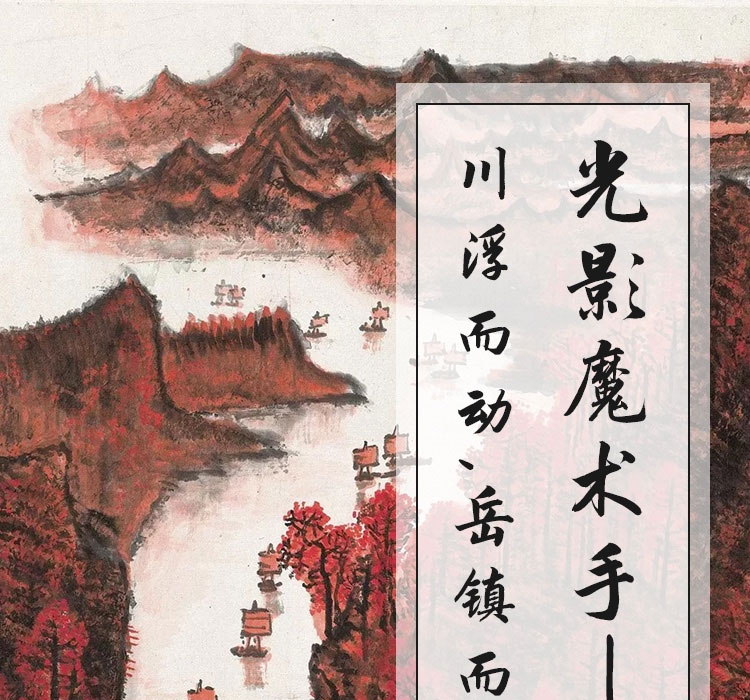 光影魔术手—
川浮而动、岳镇而